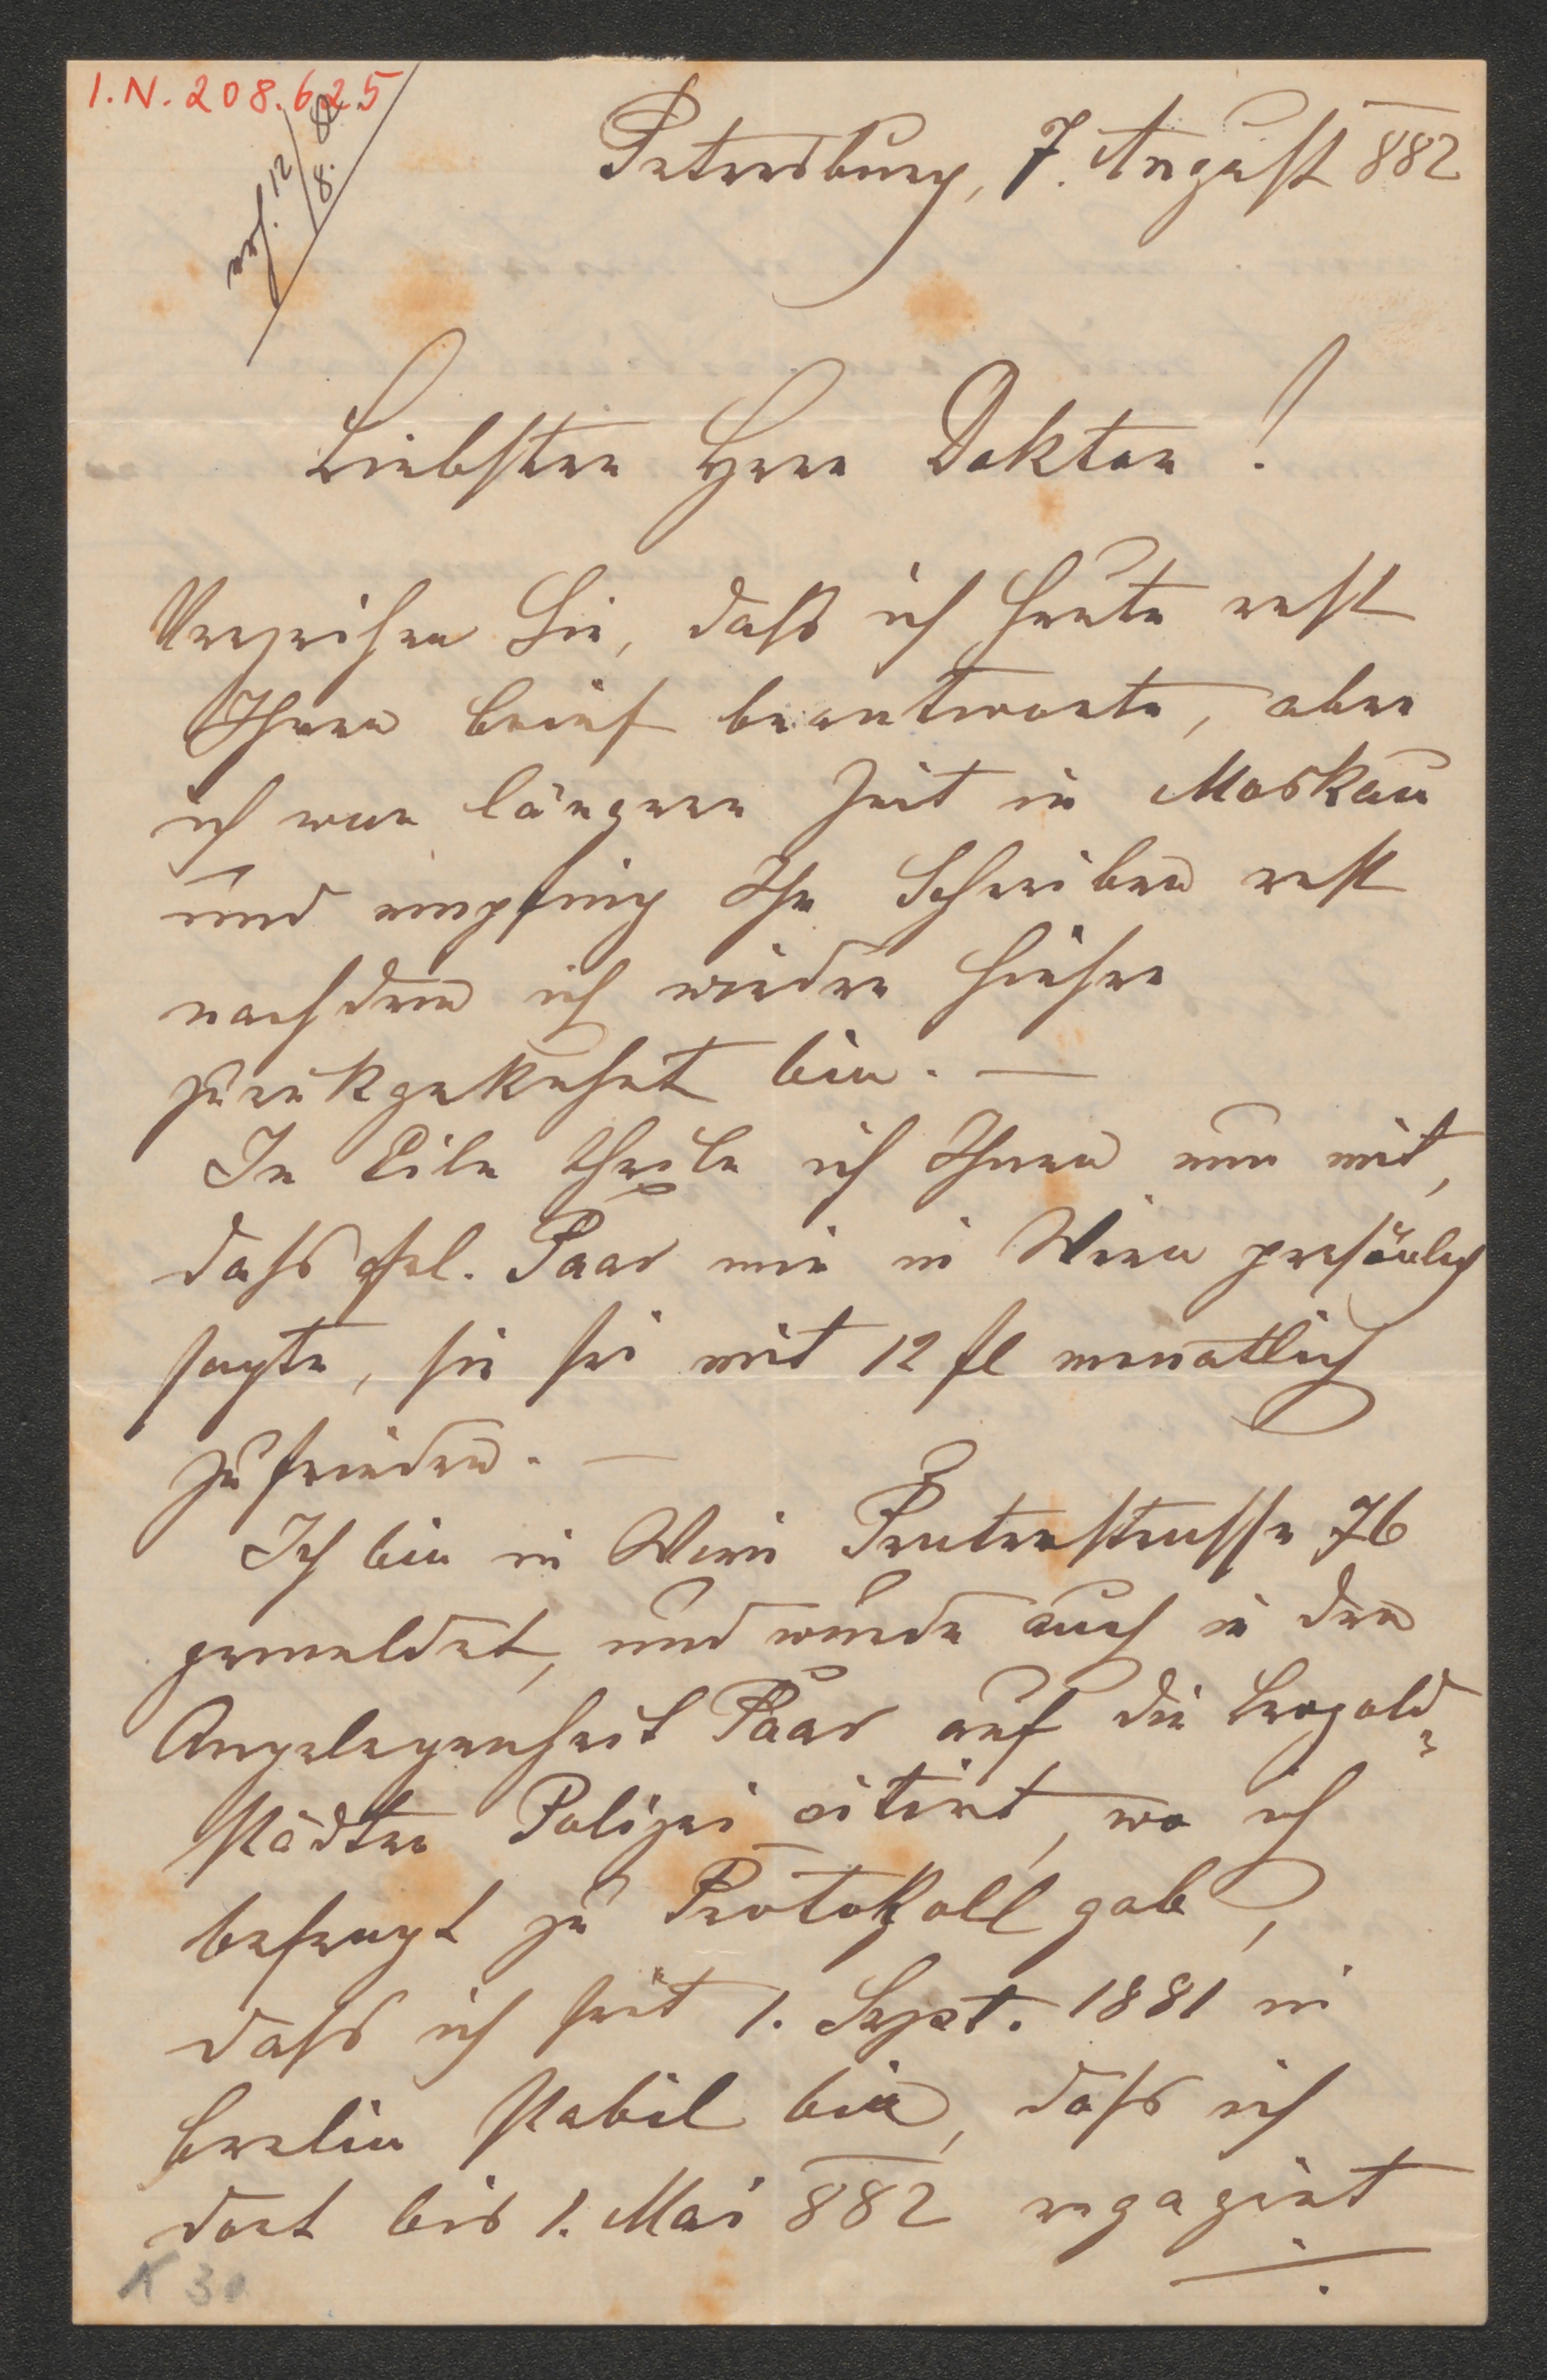 I.N. 208.625
erh. 12/8. 82
Petersburg, 7. August 882
Liebster Herr Doktor!
Verzeihen Sie, daß ich heute erst
Ihren Brief beantworte, aber
ich war längere Zeit in Moskau
und empfing Ihr Schreiben erst
nachdem ich wieder hieher
zurükgekehrt bin. —
In Eile theile ich Ihnen nun mit,
daß Frl. Paar mir in Wien persönlich
sagte, sie sei mit 12 fl monatlich
zufrieden. —
Ich bin in Wien Praterstrasse 76
gemeldet, und wurde auch in der
Angelegenheit Paar auf die Leopold-
städter Polizei citirt, wo ich
befragt zu Protokoll gab,
daß ich seit 1. Sept. 1881 in
Berlin stabil bin, daß ich
dort bis 1. Mai 882 engagirt
K 30